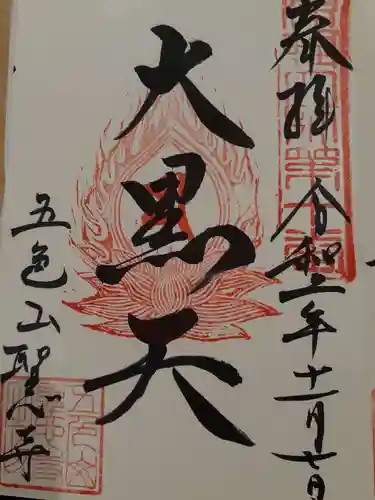 奉拝
令和二年十一月七日
大黒天
五色山聖寺